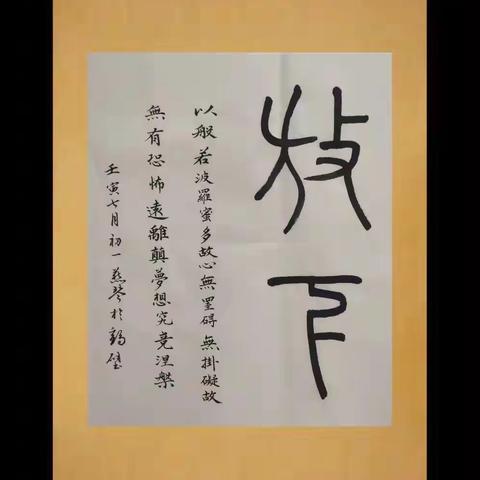 放下
以般若波羅蜜多故心無罣碍無掛礙故
無有恐怖遠離顛夢想究竟涅槃
壬寅七月初一燕琴於鶴壁